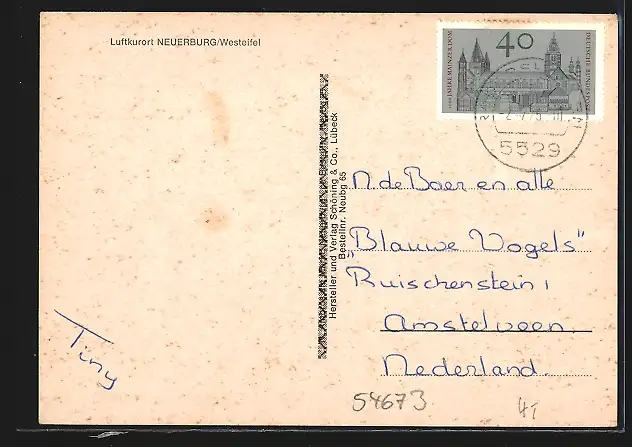 Luftkurort NEUERBURG/Westeifel
40
1000 JAHRE MAINZER DOM
DEUTSCHE BUNDESPOST
5529
Hersteller und Verlag Schöning & Co., Lübeck
Bestellnr. Neubg 65
N de Boer en alle
"Blauwe Vogels"
Ruischenstein 1
Amstelveen
Nederland.
Tiny
54673